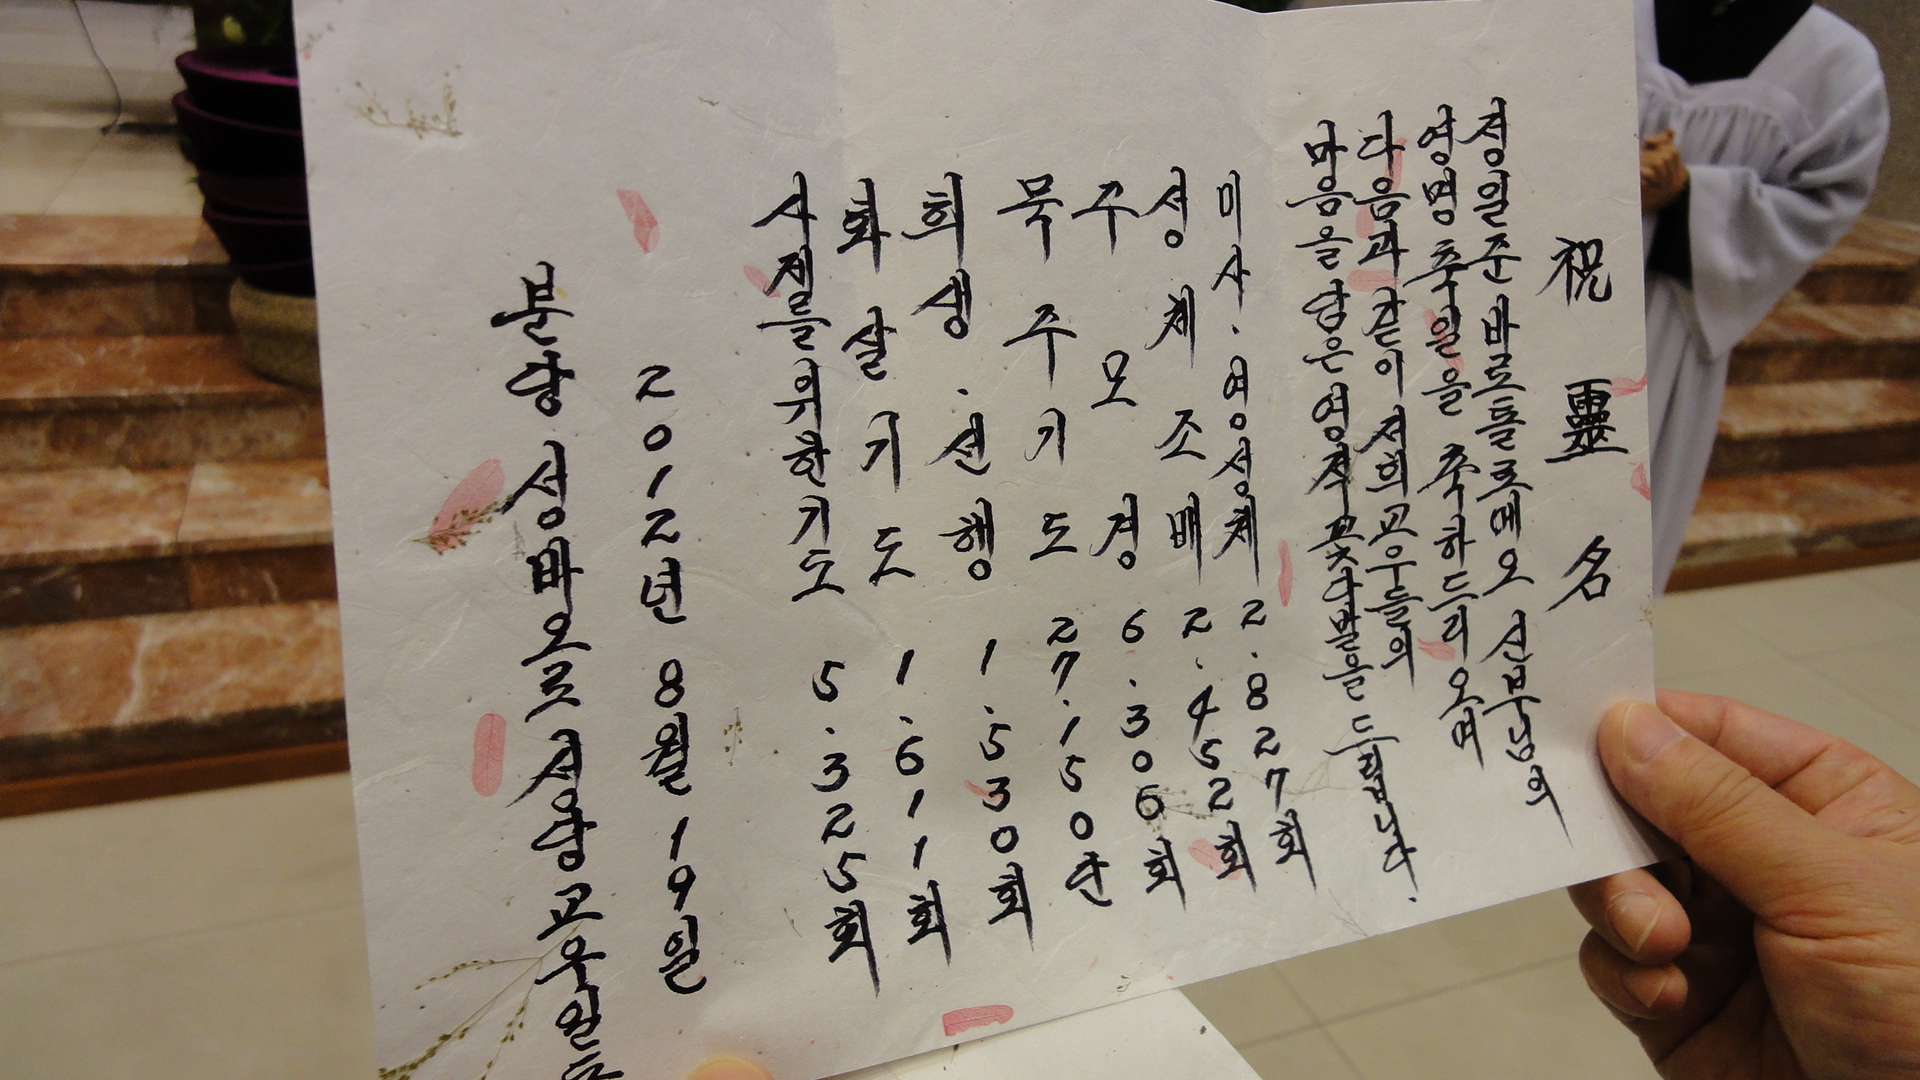 祝靈名
정월준 바르톨로메오 신부님의
영명축일을 축하드리오며
다음과 같이 저희 교우들의
마음을 담은 영적 꽃다발을 드립니다.
미사·영성체 2.827회
성체조배 2.452회
주모경 6.306회
묵주기도 27.150단
희생·선행 1.530회
화살기도 1.611회
사제들 위한 기도 5.325회
2012년 8월 19일
분당 성바오로 성당 교우일동